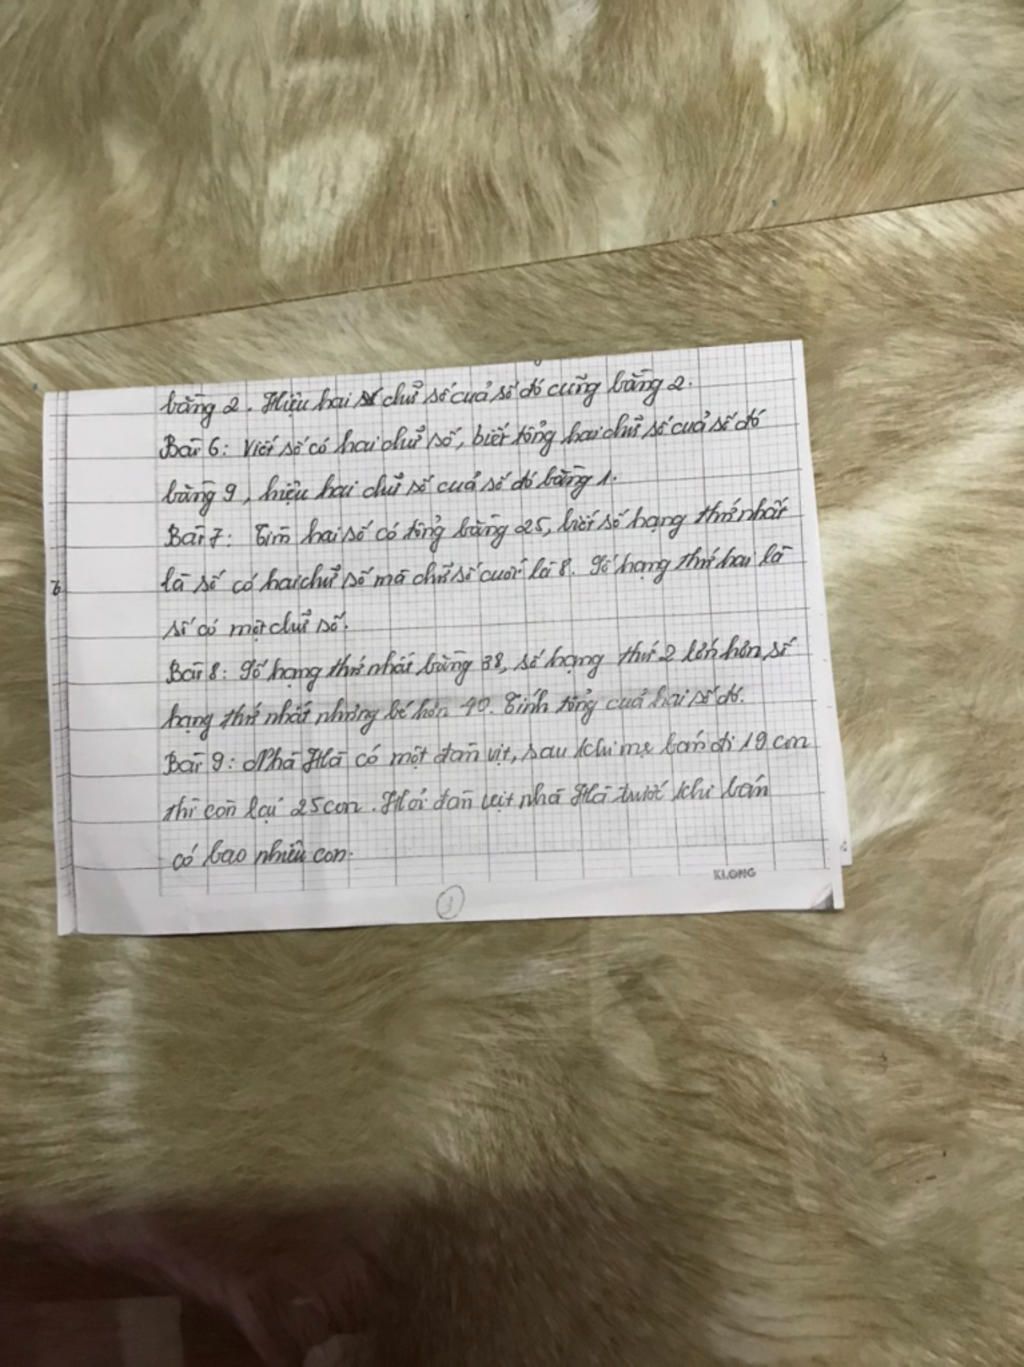 bằng 2. Hiệu hai chữ số của số đó cũng bằng 2.
Bài 6: Viết số có hai chữ số, biết tổng hai chữ số của số đó
bằng 9, hiệu hai chữ số của số đó bằng 1.
Bài 7: Tìm hai số có tổng bằng 25, biết số hạng thứ nhất
là số có hai chữ số mà chữ số cuối là 8. Số hạng thứ hai là
số có một chữ số.
Bài 8: Số hạng thứ nhất bằng 38, số hạng thứ 2 lớn hơn số
hạng thứ nhất nhưng bé hơn 40. Tính tổng của hai số đó.
Bài 9: Nhà Hà có một đàn vịt, sau khi mẹ bán đi 19 con
thì còn lại 25 con. Hỏi đàn vịt nhà Hà trước khi bán
có bao nhiêu con.
KLONG